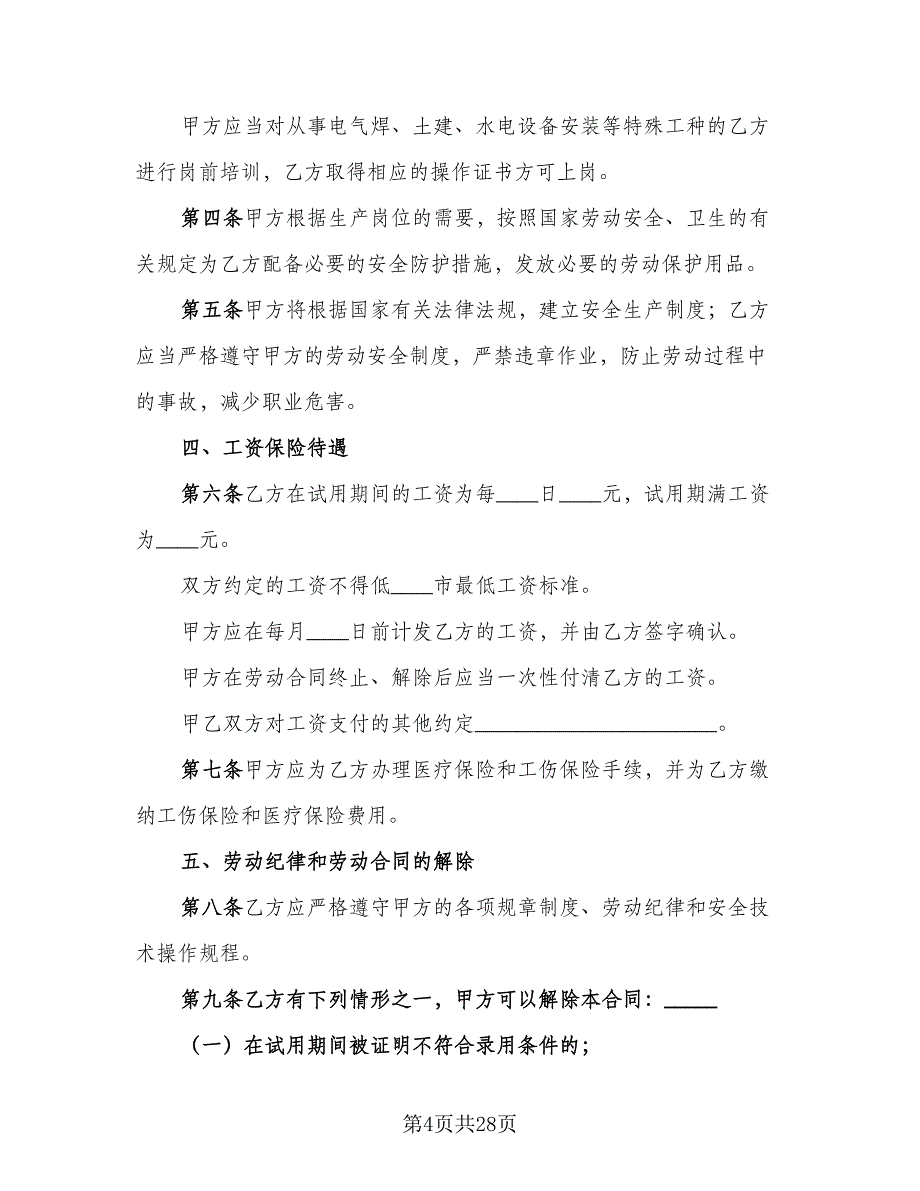 甲方应当对从事电气焊、土建、水电设备安装等特殊工种的乙方
进行岗前培训，乙方取得相应的操作证书方可上岗。
第四条甲方根据生产岗位的需要，按照国家劳动安全、卫生的有
关规定为乙方配备必要的安全防护措施，发放必要的劳动保护用品。
第五条甲方将根据国家有关法律法规，建立安全生产制度；乙方
应当严格遵守甲方的劳动安全制度，严禁违章作业，防止劳动过程中
的事故，减少职业危害。
四、工资保险待遇
第六条乙方在试用期间的工资为每____日____元，试用期满工资
为____元。
双方约定的工资不得低____市最低工资标准。
甲方应在每月____日前计发乙方的工资，并由乙方签字确认。
甲方在劳动合同终止、解除后应当一次性付清乙方的工资。
甲乙双方对工资支付的其他约定_______________________。
第七条甲方应为乙方办理医疗保险和工伤保险手续，并为乙方缴
纳工伤保险和医疗保险费用。
五、劳动纪律和劳动合同的解除
第八条乙方应严格遵守甲方的各项规章制度、劳动纪律和安全技
术操作规程。
第九条乙方有下列情形之一，甲方可以解除本合同：_____
（一）在试用期间被证明不符合录用条件的；
第4页共28页